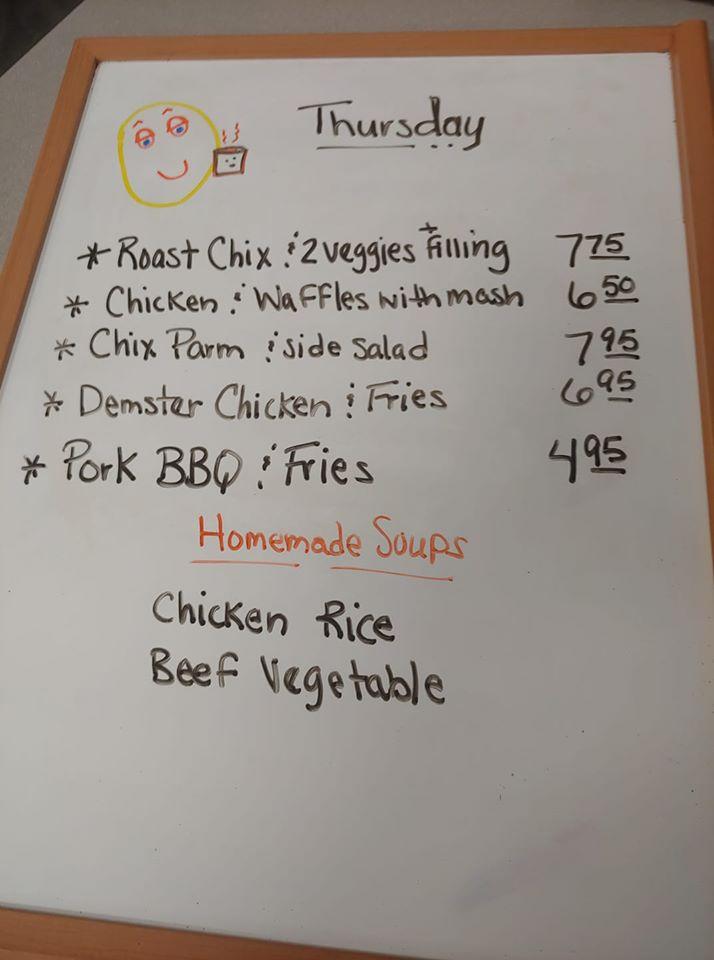 Thursday
* Roast Chix & 2 veggies + filling 7 75
* Chicken & Waffles with mash 6 50
* Chix Parm & side salad 7 95
* Demster Chicken & Fries 6 95
* Pork BBQ & Fries 4 95
Homemade Soups
Chicken Rice
Beef Vegetable